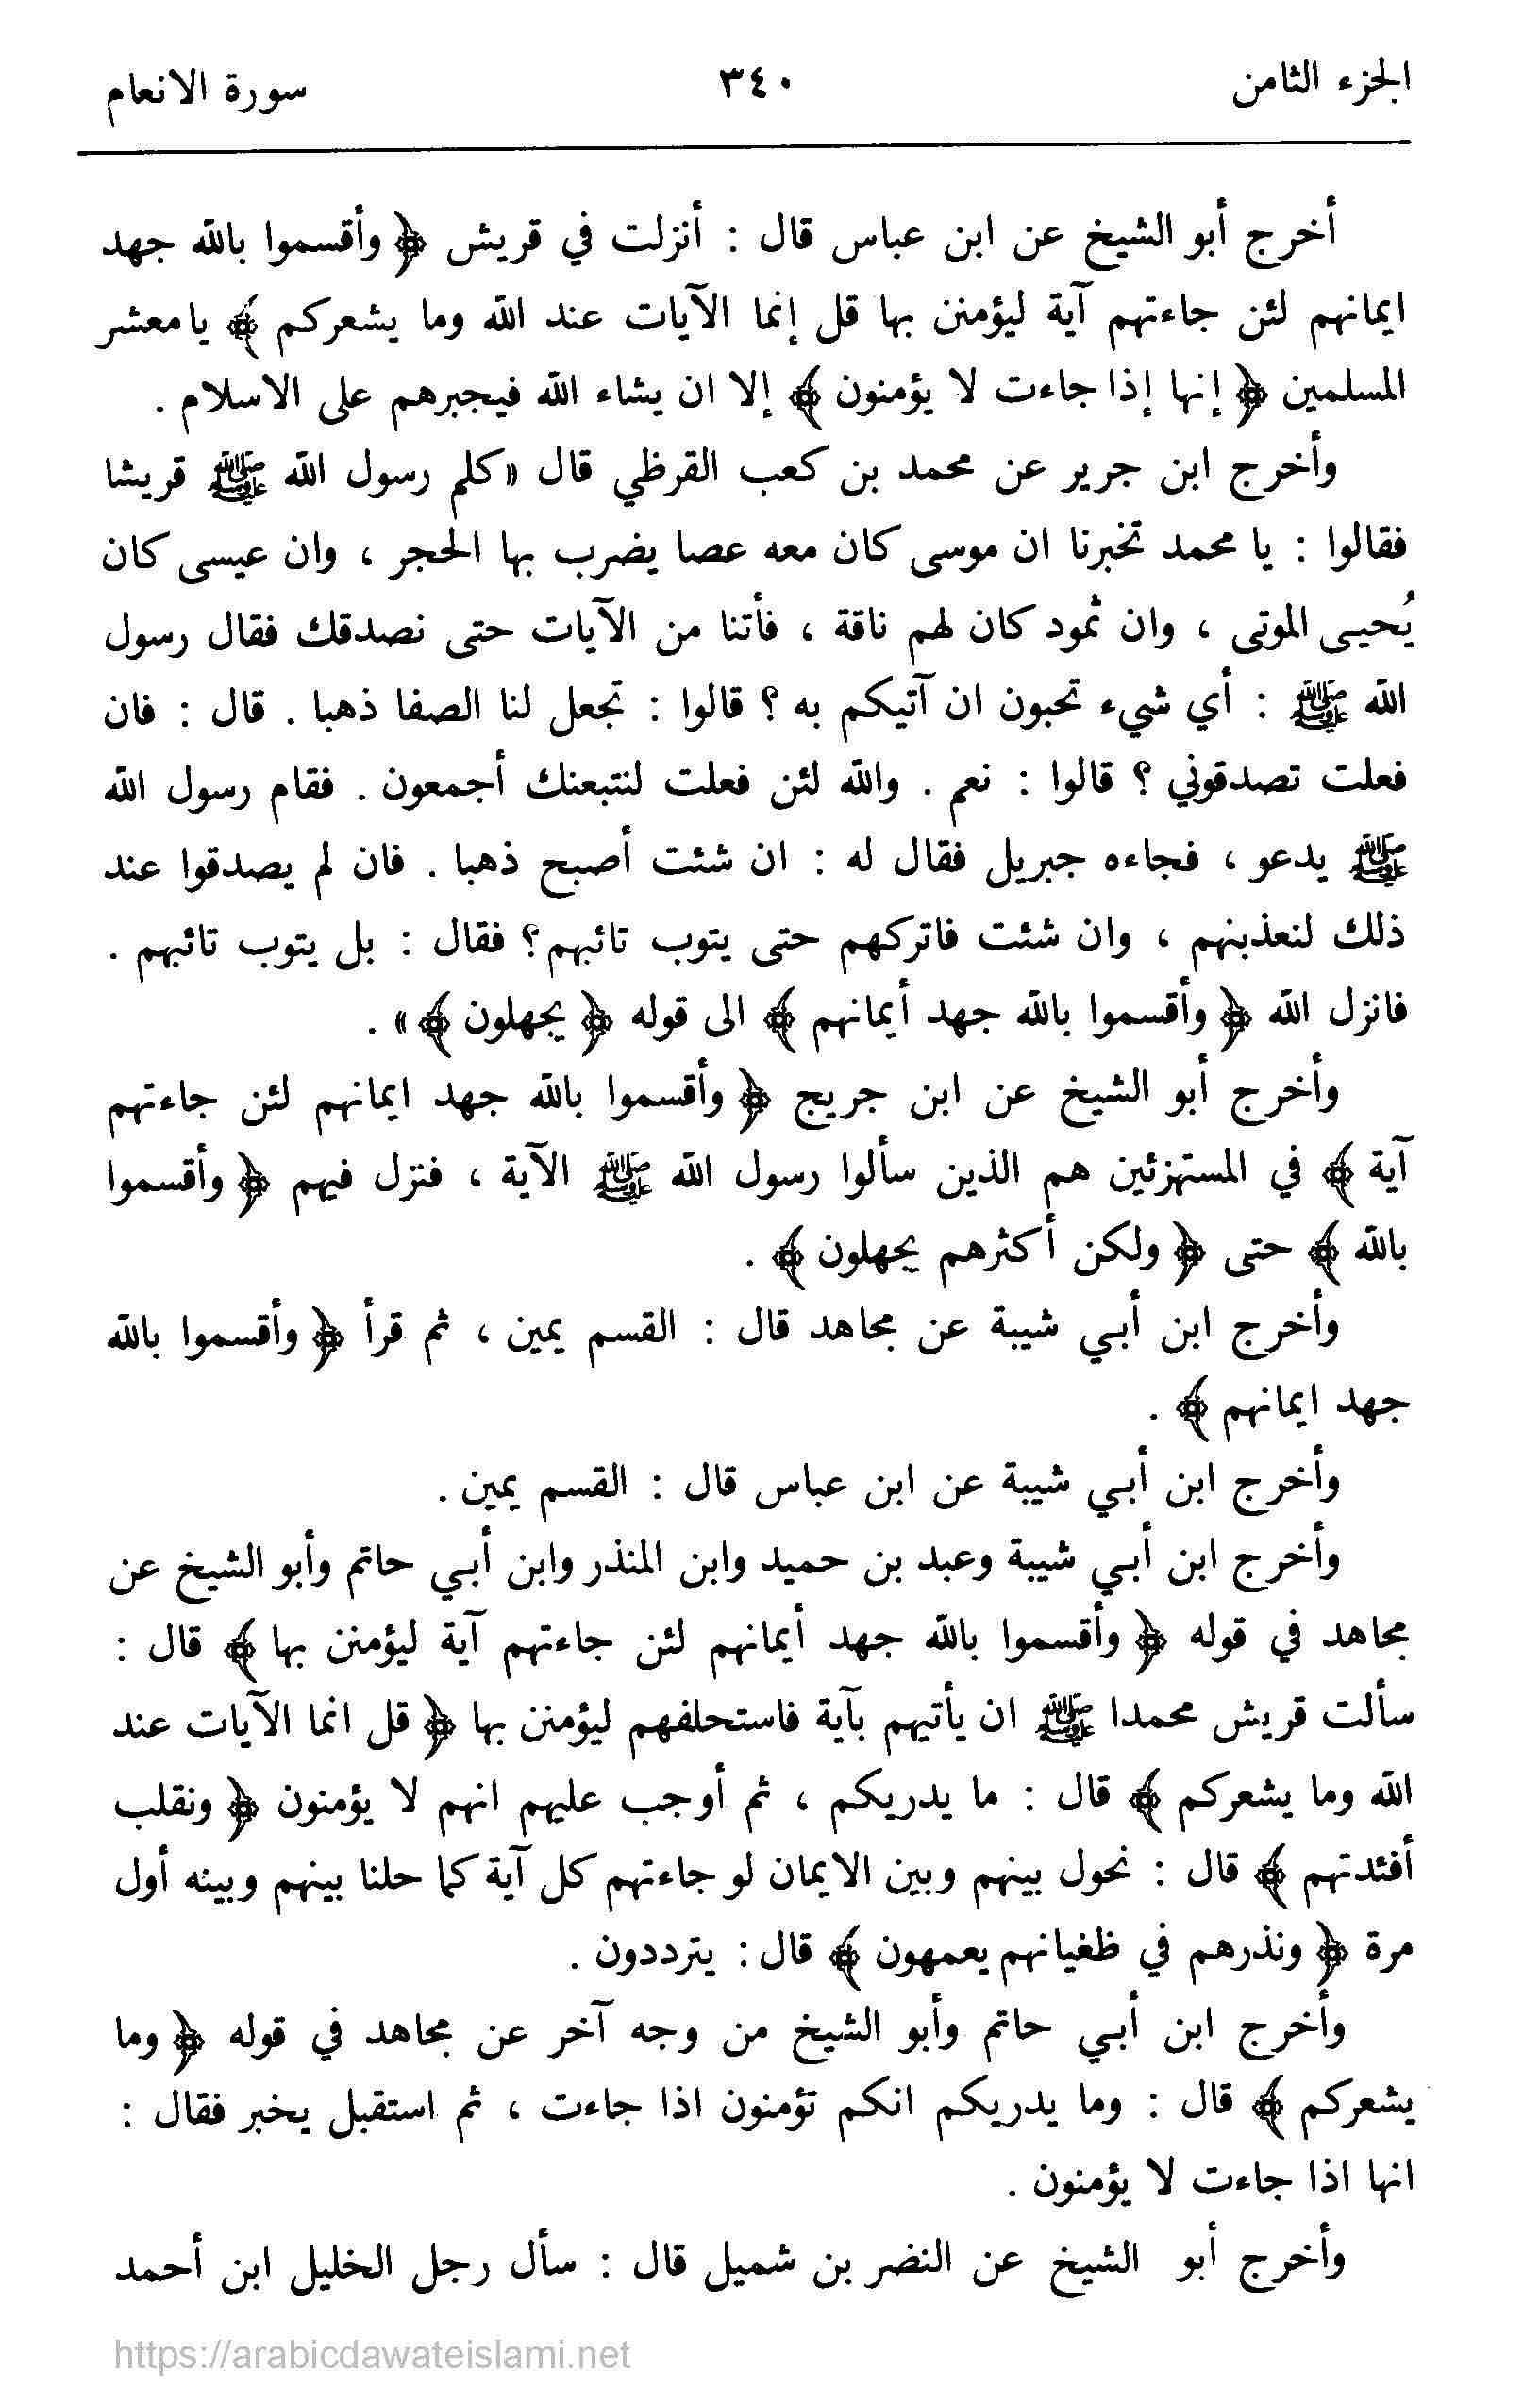 الجزء الثامن ٣٤٠ سورة الانعام
أخرج أبو الشيخ عن ابن عباس قال : أنزلت في قريش ﴿ وأقسموا بالله جهد
ايمانهم لئن جاءتهم آية ليؤمنن بها قل إنما الآيات عند الله وما يشعركم ﴾ يا معشر
المسلمين ﴿ إنها إذا جاءت لا يؤمنون ﴾ إلا ان يشاء الله فيجبرهم على الاسلام .
وأخرج ابن جرير عن محمد بن كعب القرظي قال « كلم رسول الله ﷺ قريشا
فقالوا : يا محمد تخبرنا ان موسى كان معه عصا يضرب بها الحجر ، وان عيسى كان
يُحيـى الموتى ، وان ثمود كان لهم ناقة ، فأتنا من الآيات حتى نصدقك فقال رسول
الله ﷺ : أي شيء تحبون ان آتيكم به ؟ قالوا : تجعل لنا الصفا ذهبا . قال : فان
فعلت تصدقوني ؟ قالوا : نعم . والله لئن فعلت لنتبعنك أجمعون . فقام رسول الله
ﷺ يدعو ، فجاءه جبريل فقال له : ان شئت أصبح ذهبا . فان لم يصدقوا عند
ذلك لنعذبنهم ، وان شئت فاتركهم حتى يتوب تائبهم ؟ فقال : بل يتوب تائبهم .
فانزل الله ﴿ وأقسموا بالله جهد أيمانهم ﴾ الى قوله ﴿ يجهلون ﴾ » .
وأخرج أبو الشيخ عن ابن جريج ﴿ وأقسموا بالله جهد ايمانهم لئن جاءتهم
آية ﴾ في المستهزئين هم الذين سألوا رسول الله ﷺ الآية ، فنزل فيهم ﴿ وأقسموا
بالله ﴾ حتى ﴿ ولكن أكثرهم يجهلون ﴾ .
وأخرج ابن أبـي شيبة عن مجاهد قال : القسم يمين ، ثم قرأ ﴿ وأقسموا بالله
جهد ايمانهم ﴾ .
وأخرج ابن أبـي شيبة عن ابن عباس قال : القسم يمين .
وأخرج ابن أبـي شيبة وعبد بن حميد وابن المنذر وابن أبـي حاتم وأبو الشيخ عن
مجاهد في قوله ﴿ وأقسموا بالله جهد أيمانهم لئن جاءتهم آية ليؤمنن بها ﴾ قال :
سألت قريش محمدا ﷺ ان يأتيهم بآية فاستحلفهم ليؤمنن بها ﴿ قل انما الآيات عند
الله وما يشعركم ﴾ قال : ما يدريكم ، ثم أوجب عليهم انهم لا يؤمنون ﴿ ونقلب
أفئدتهم ﴾ قال : نحول بينهم وبين الايمان لو جاءتهم كل آية كما حلنا بينهم وبينه أول
مرة ﴿ ونذرهم في ظغيانهم يعمهون ﴾ قال : يترددون .
وأخرج ابن أبـي حاتم وأبو الشيخ من وجه آخر عن مجاهد في قوله ﴿ وما
يشعركم ﴾ قال : وما يدريكم انكم تؤمنون اذا جاءت ، ثم استقبل يخبر فقال :
انها اذا جاءت لا يؤمنون .
وأخرج أبو الشيخ عن النضر بن شميل قال : سأل رجل الخليل ابن أحمد
https://arabicdawateislami.net